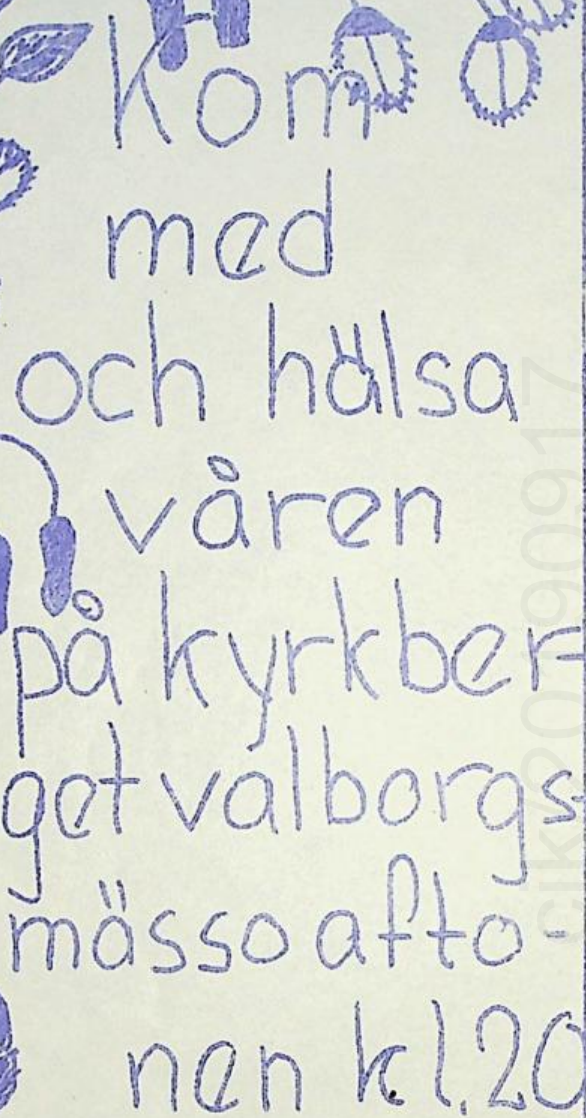 kom
med
och hälsa
våren
på kyrkber-
get valborgs-
mässo afto-
nen kl.20
cik/20190917